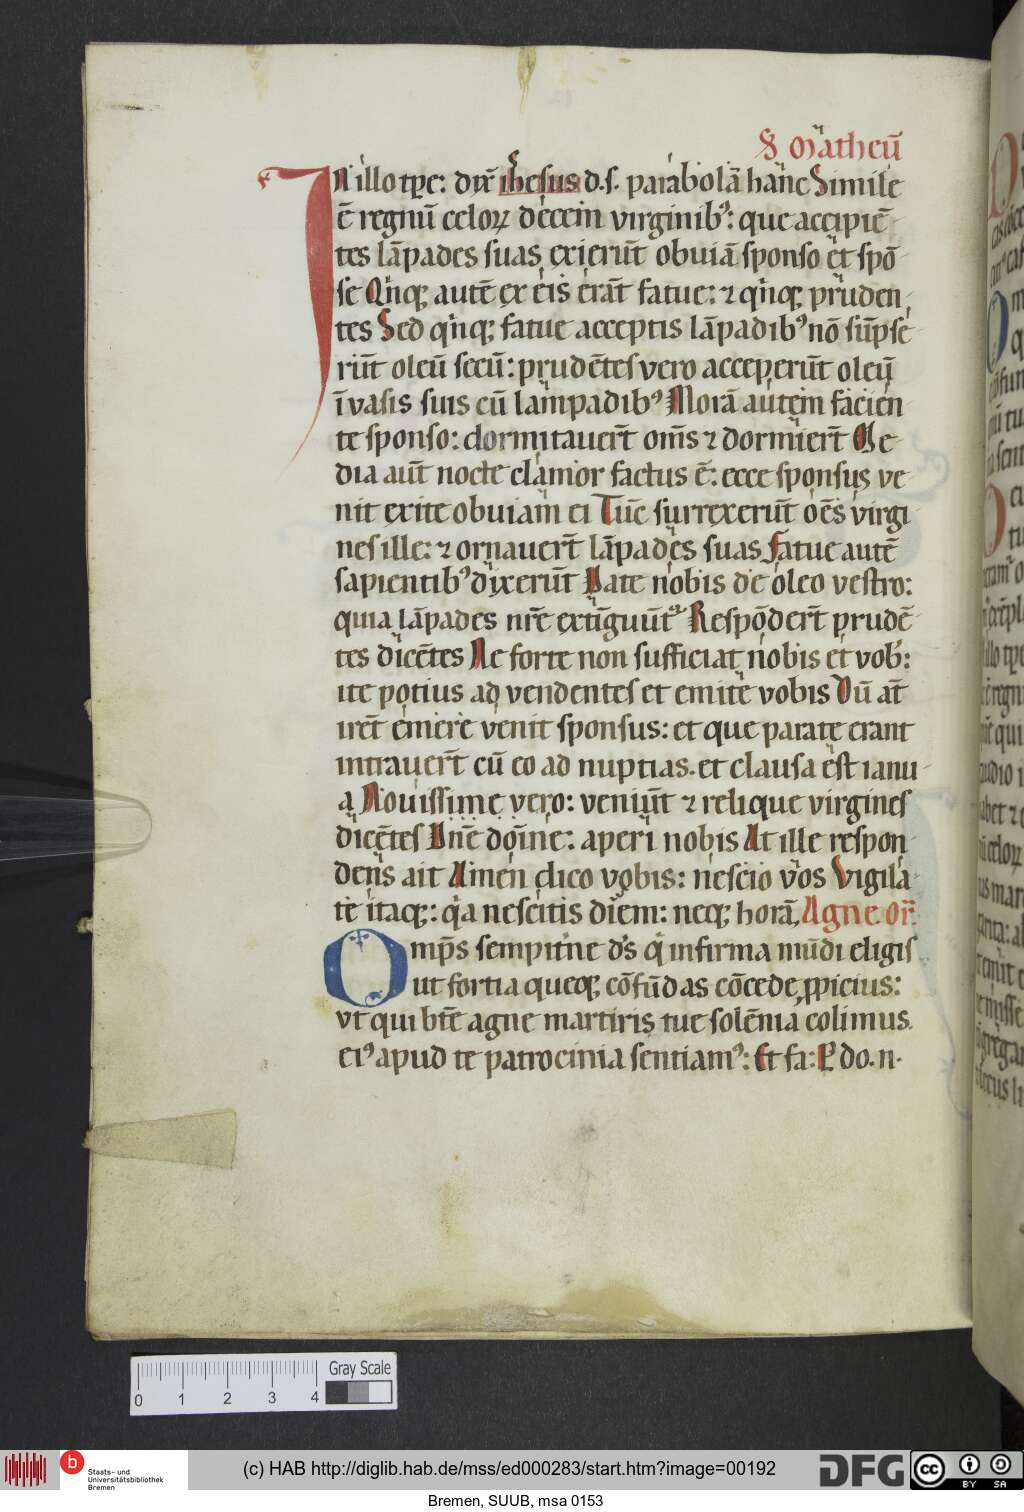 S. Matheū
IN illo tp̄e: dix̄ ihesus d. s. parabolā hanc Simile
ē regnū celoꝝ decem virginibꝰ: que accipiē
tes lāpades suas exierūt obuiā sponso et spō
se Qͥnqꝫ autē ex eis erāt fatue: ⁊ qͥnqꝫ pruden
tes Sed qͥnqꝫ fatue acceptis lāpadibꝰ nō sūpse
rūt oleū secū: prudētes vero acceperūt oleū
ī vasis suis cū lampadibꝰ Morā autem facien
te sponso: dormitauer̄t om̄s ⁊ dormier̄t Me
dia aut̄ nocte clamor factus ē: ecce sponsus ve
nit exite obuiam ei Tūc surrexerūt oēs virgi
nes ille: ⁊ ornauer̄t lāpades suas Fatue autē
sapientibꝰ dixerūt Date nobis de oleo vestro:
quia lāpades nr̄e extīguūtᷣ Respōder̄t prudē
tes dicētes Ne forte non sufficiat nobis et vob̄:
ite potius ad vendentes et emite vobis Dū at̄
irēt emere venit sponsus: et que parate erant
intrauer̄t cū eo ad nuptias. et clausa est ianu
a Nouissime vero: veniūt ⁊ relique virgines
dicētes Dn̄e dōine: aperi nobis At ille respon
dens ait Amen dico vobis: nescio vos Vigila
te itaqꝫ: qͥa nescitis diem: neqꝫ horā, Agne or̄.
Omp̄s sempitͥne ds̄ qͥ infirma mūdi eligis
ut fortia queqꝫ cōfūdas cōcede ꝓpicius:
vt qui btē agne martiris tue solēnia colimus
eiꝰ apud te patrocinia sentiamꝰ: Et fa: P do. n.
Gray Scale
0 1 2 3 4
b Staats- und
Universitätsbibliothek
Bremen
(c) HAB http://diglib.hab.de/mss/ed000283/start.htm?image=00192
DFG
cc BY SA
Bremen, SUUB, msa 0153